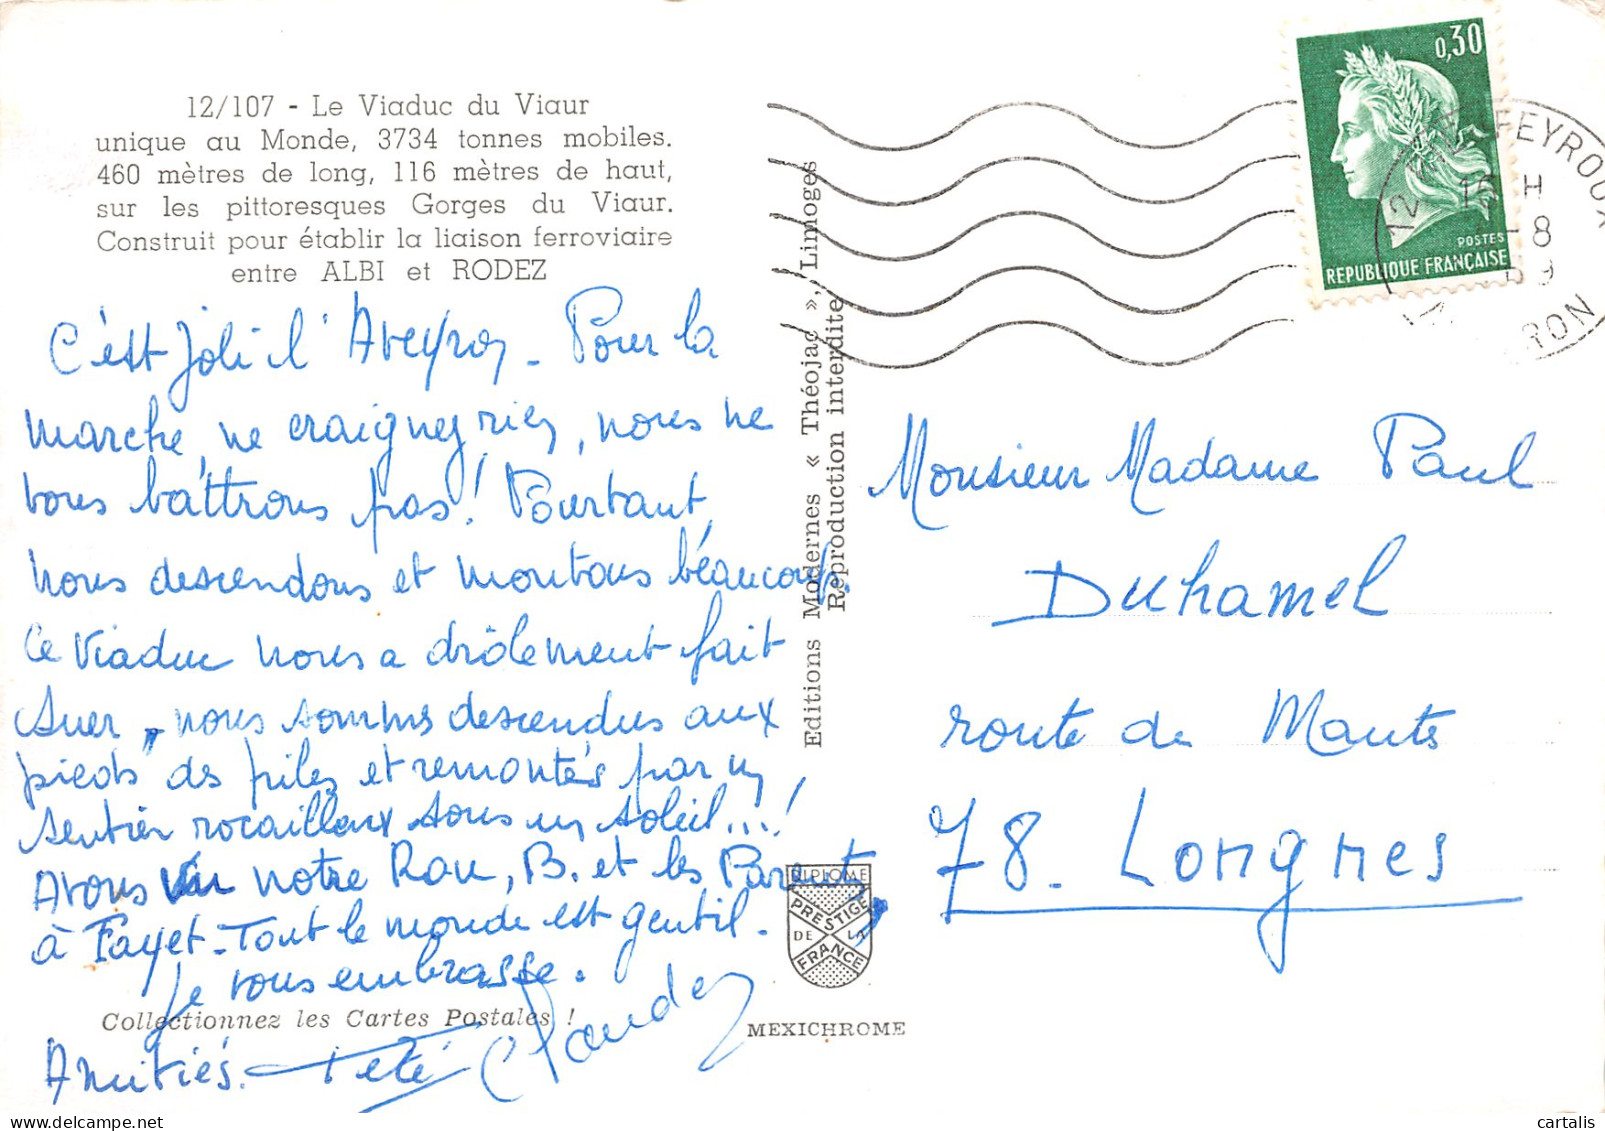 12/107 - Le Viaduc du Viaur
unique au Monde, 3734 tonnes mobiles.
460 mètres de long, 116 mètres de haut,
sur les pittoresques Gorges du Viaur.
Construit pour établir la liaison ferroviaire
entre ALBI et RODEZ
C'est Joli l'Aveyron - Pour la
marche, ne craignez rien, nous ne
vous battrons pas! Pourtant,
nous descendons et montons beaucoup.
Ce Viaduc nous a drôlement fait
suer, nous sommes descendus aux
pieds des piles et remontés par un
sentier rocailleux sous un soleil...!
Avons vu notre Rou, B. et les Parents
à Fayet. Tout le monde est gentil.
Je vous embrasse.
Collectionnez les Cartes Postales !
Amitiés. Tété Claude
Editions Modernes « Théojac », Limoges
Reproduction interdite
DIPLOME
PRESTIGE
DE LA
FRANCE
MEXICHROME
0,30
POSTES
REPUBLIQUE FRANÇAISE
12 FEYROUX
15 H
-8
RON
Monsieur Madame Paul
DUHAMEL
route de Mantes
78. Longnes
cartalis